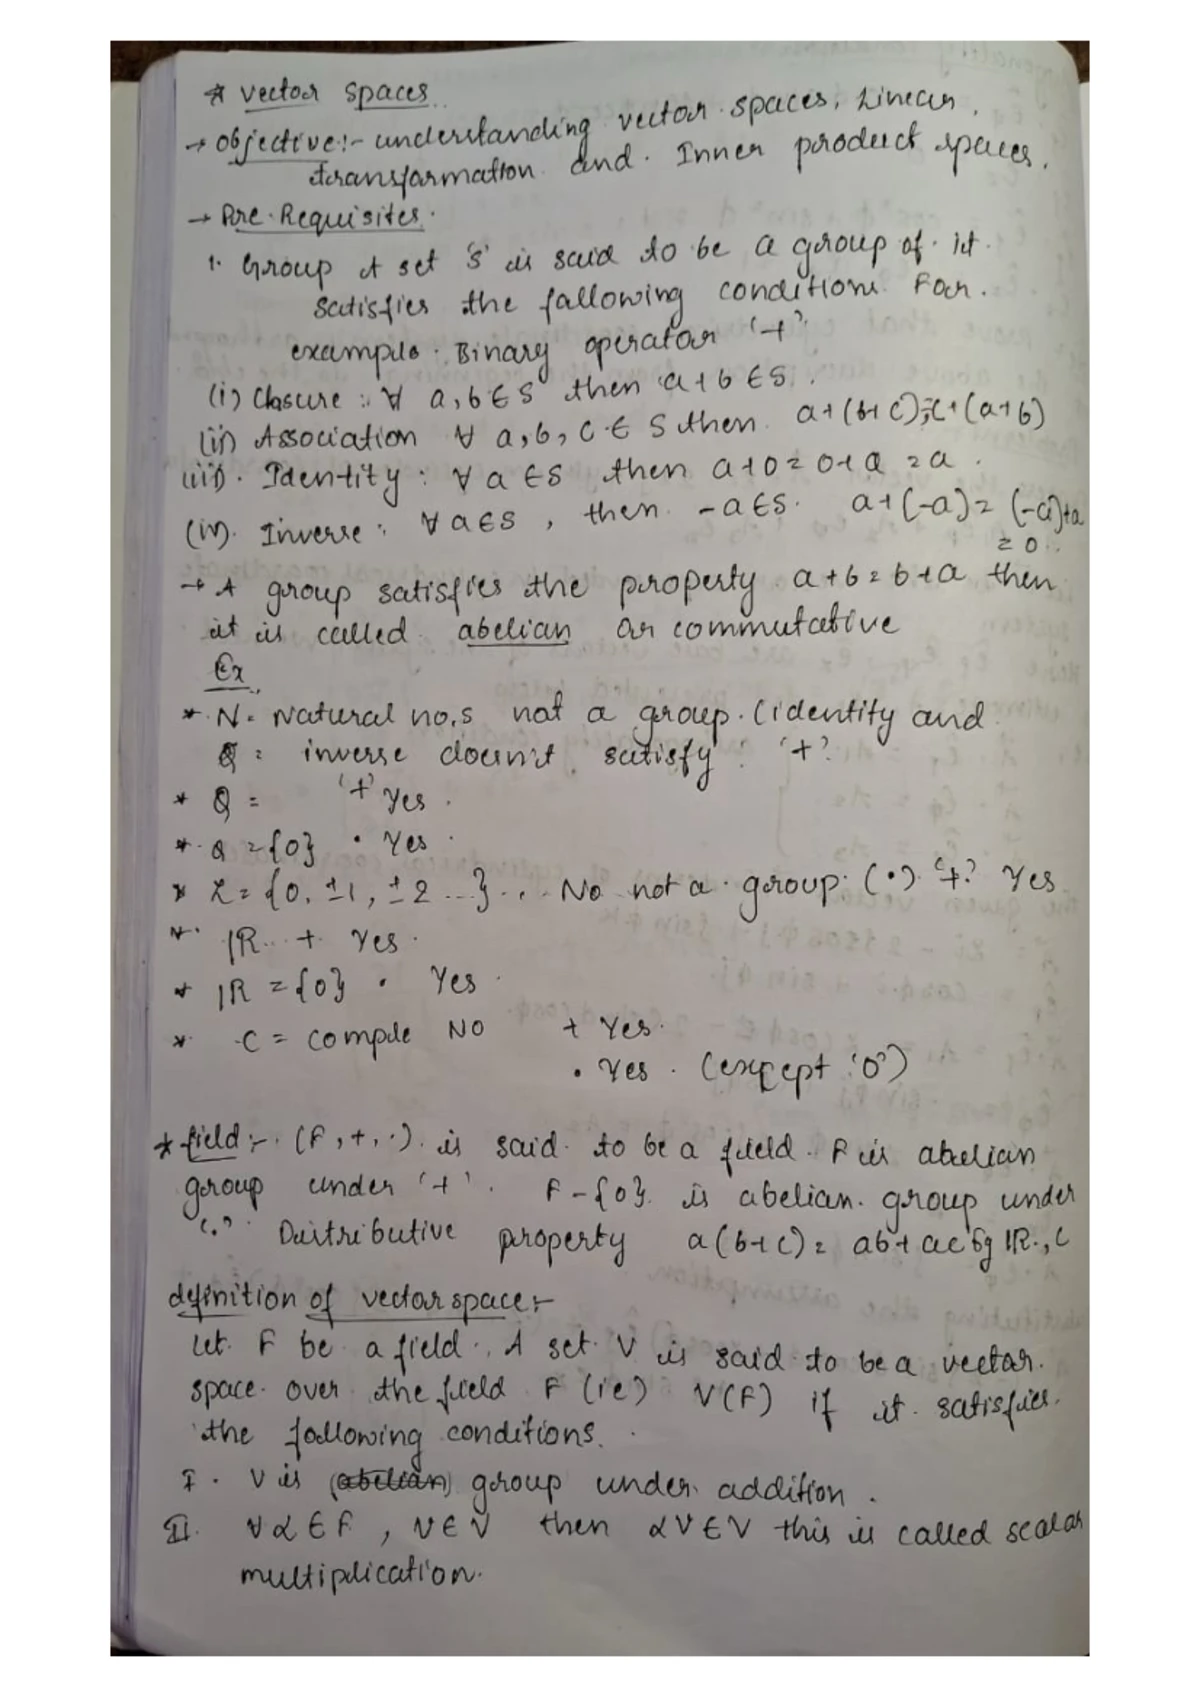 * vector spaces..
→ objective:- understanding vector spaces, Linear
transformation and Inner product spaces.
→ Pre-Requisites.
1. Group A set 'S' is said to be a group of it
satisfies the following conditions. For
example: Binary operator '+'.
(i) Closure :. ∀ a, b ∈ S then a + b ∈ S.
(ii) Association ∀ a, b, c ∈ S then a + (b + c) = c + (a + b)
(iii). Identity : ∀ a ∈ S then a + 0 = 0 + a = a.
(iv). Inverse : ∀ a ∈ S, then -a ∈ S. a + (-a) = (-a) + a
= 0.
→ A group satisfies the property a + b = b + a then
it is called abelian or commutative
Ex
* N = Natural no,s not a group. (identity and
Q = inverse doesn't satisfy '+'.
* Q = '+' Yes.
* Q = {0} • Yes.
* Z = {0, ±1, ±2 ...} .. No not a group. (•) '+' Yes
* IR + Yes.
* IR = {0} • Yes
* C = comple NO + Yes.
• Yes. (except '0')
* field :- (F, +, ·) is said to be a field. F is abelian
group under '+'. F - {0} is abelian group under
'.' Distributive property a(b + c) = ab + ac Eg IR., C
definition of vector space:-
Let F be a field. A set V is said to be a vector
space over the field F (ie) V(F) if it satisfies
the following conditions.
I. V is (abelian) group under addition.
II. ∀ α ∈ F, v ∈ V then αv ∈ V this is called scalar
multiplication.